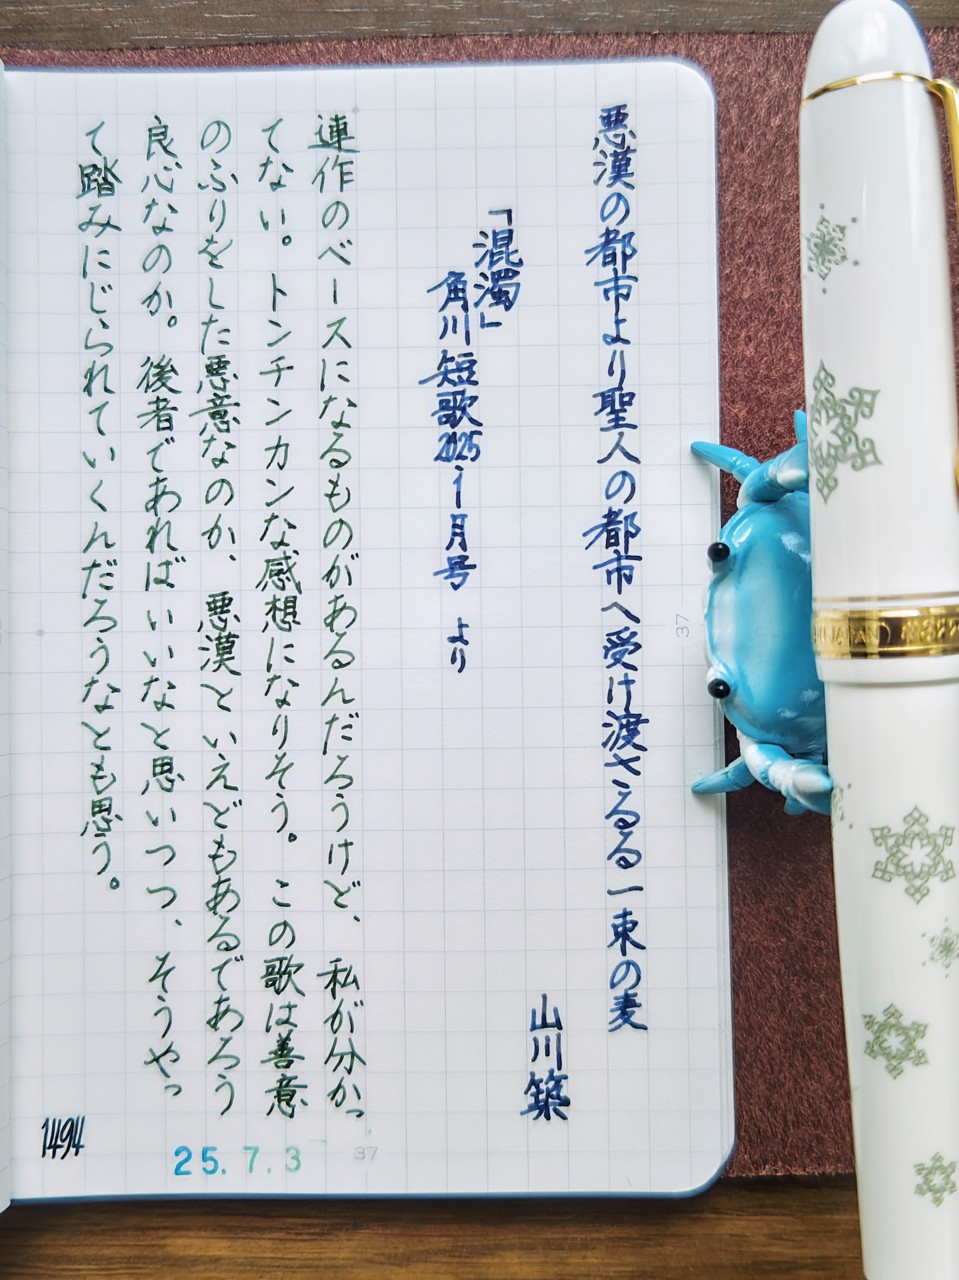 悪漢の都市より聖人の都市へ受け渡さるる一束の麦
山川築
「混濁」
角川短歌2025.1月号 より
連作のベースになるものがあるんだろうけど、私が分かっ
てない。トンチンカンな感想になりそう。この歌は善意
のふりをした悪意なのか、悪漢といえどもあるであろう
良心なのか。後者であればいいなと思いつつ、そうやっ
て踏みにじられていくんだろうなとも思う。
1494
25.7.3
37
37